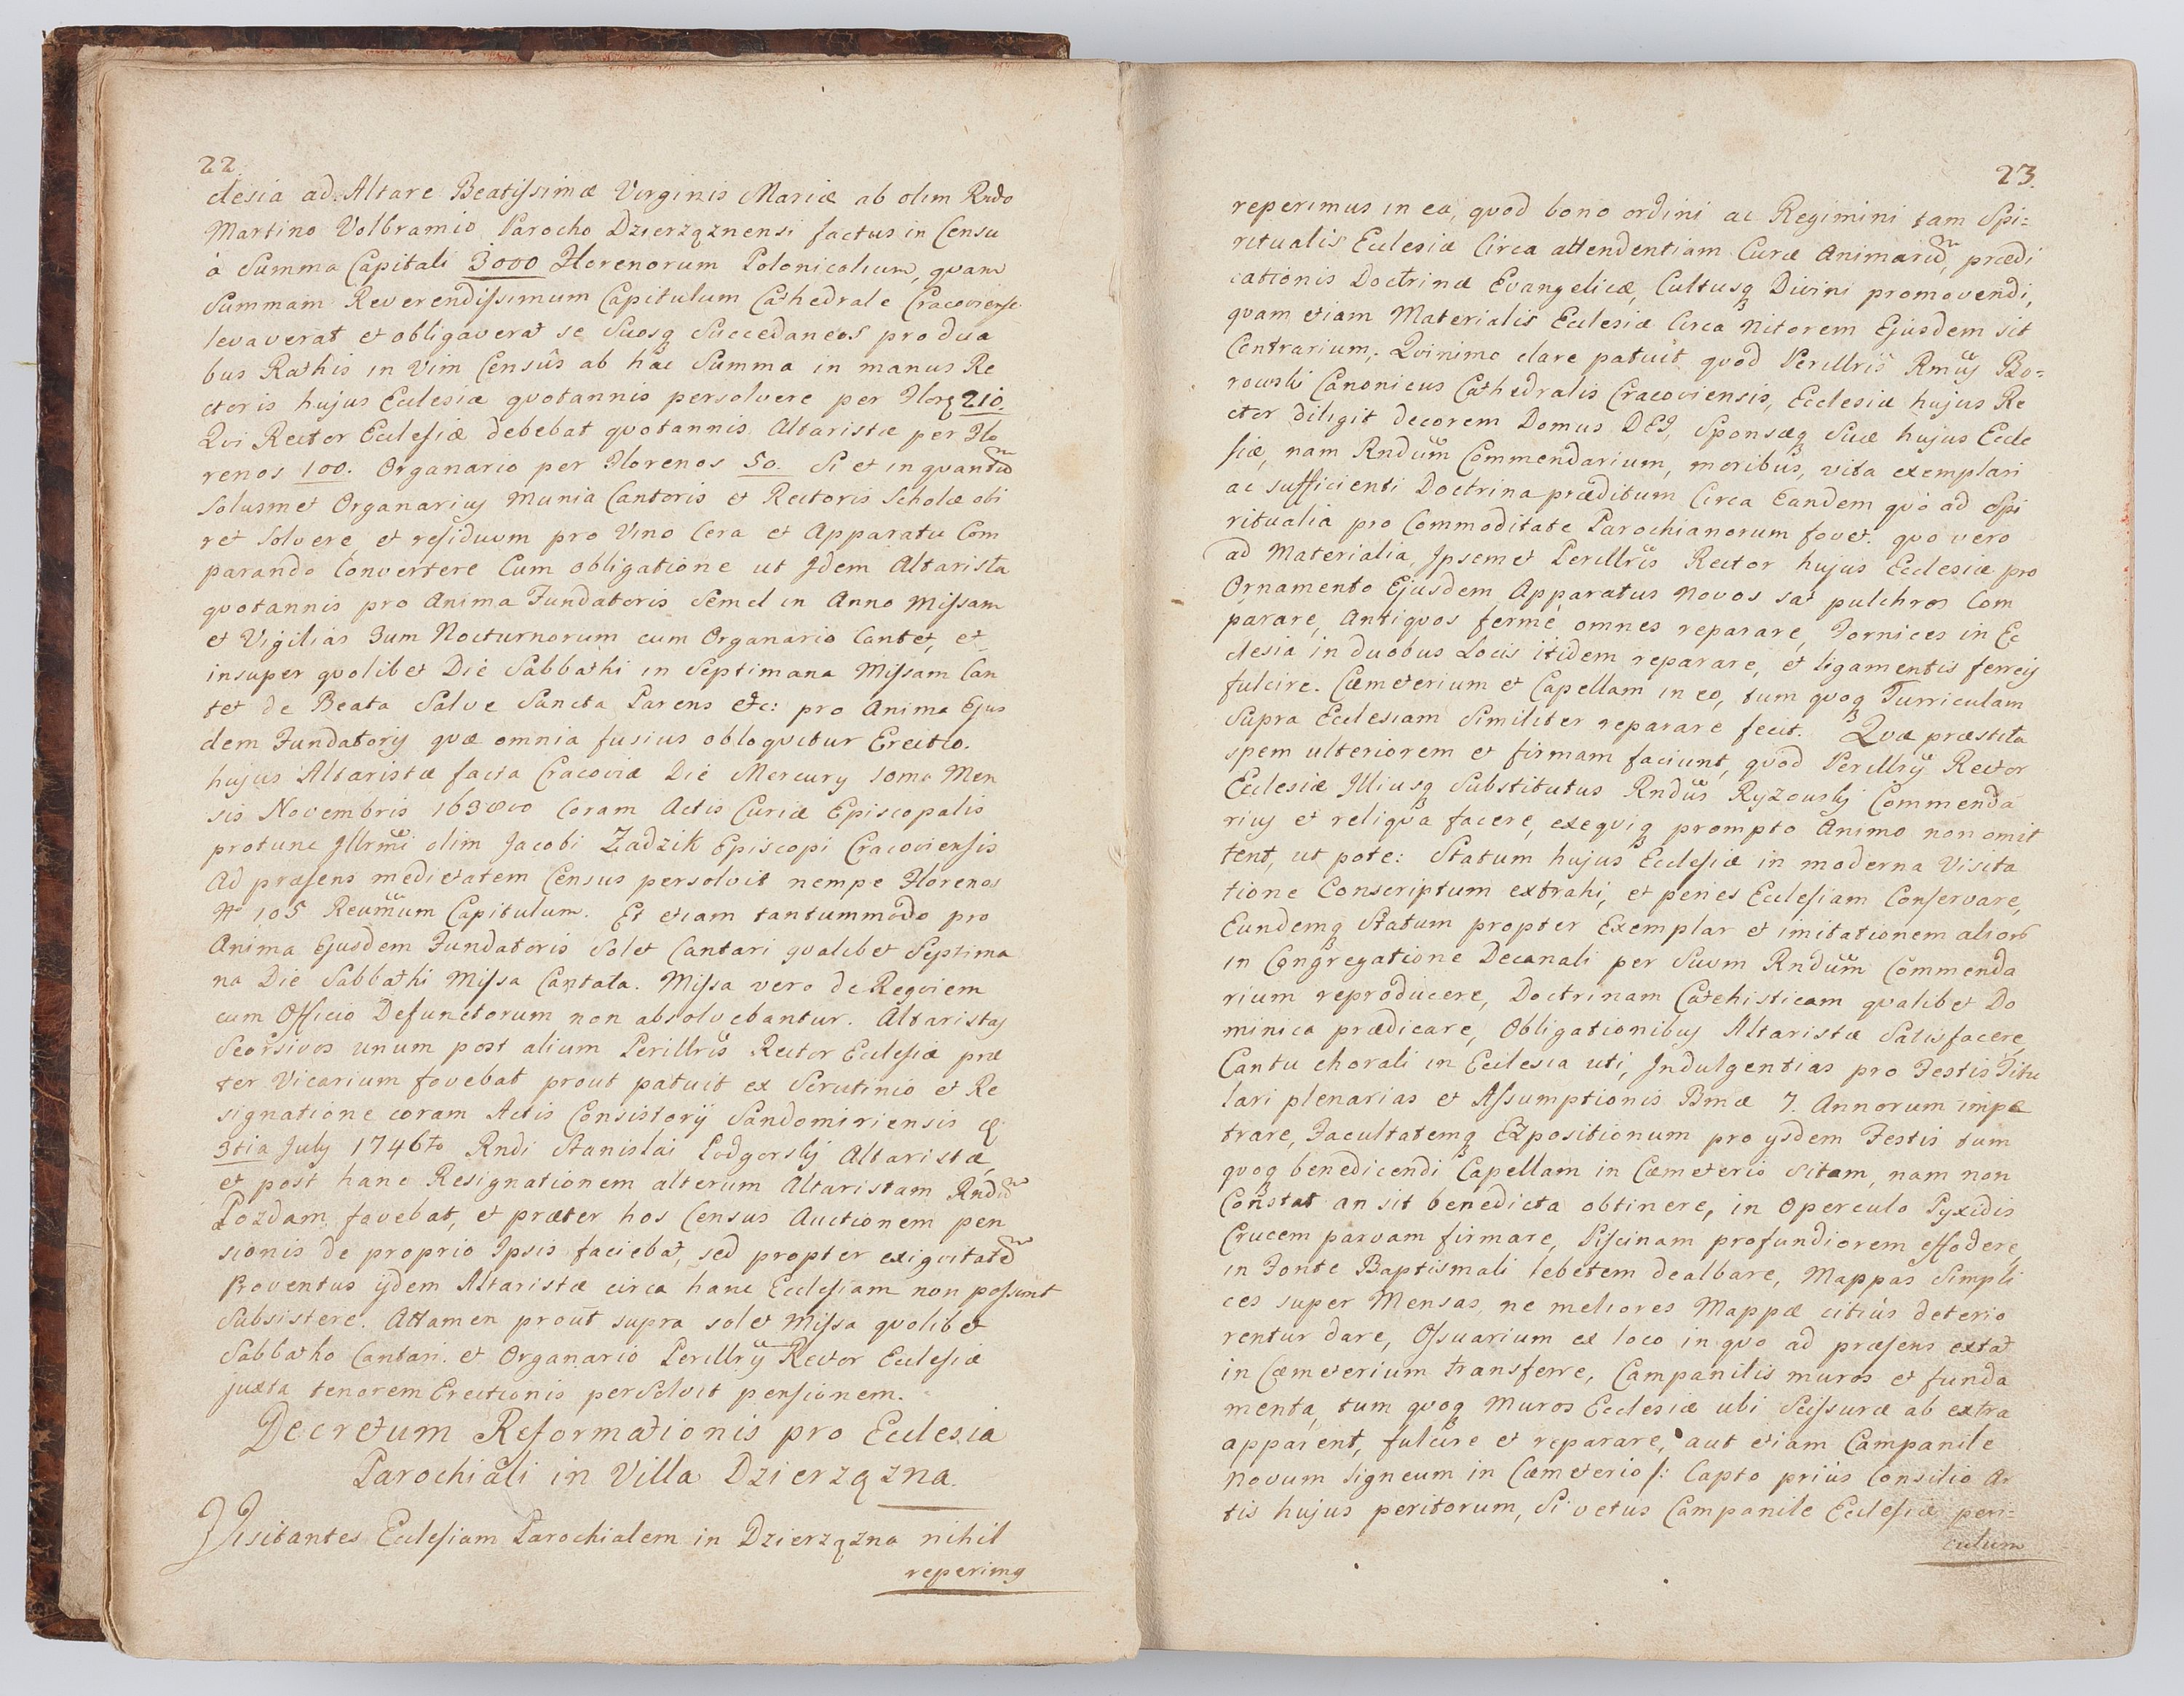 22.
clesia ad Altare Beatissimæ Virginis Mariæ ab olim Rndo
Martino Volbramio Parocho Dzierząznensi factus in Censu
à Summa Capitali 3000 Florenorum Polonicalium, quam
Summam Reverendissimum Capitulum Cathedrale Cracoviense
levaverat et obligaverat se Suosq Succedaneos pro dua
bus Rathis in Vim Censûs ab hâc Summa in manus Re
ctoris hujus Ecclesiæ quotannis persolvere per Florq 210.
Qui Rector Ecclesiæ debebat quotannis Altaristæ per Flo
renos 100. Organario per Florenos 50. Si et in quantũ
Solusmet Organarius munia Cantoris et Rectoris Scholæ obi
ret Solvere, et residuum pro Vino Cera et Apparatu Com
parando Convertere Cum obligatione ut Idem Altarista
quotannis pro Anima Fundatoris Semel in Anno Missam
et Vigilias 3um Nocturnorum cum Organario Cantet, et
insuper quolibet Die Sabbathi in Septimana Missam Can
tet de Beata Salve Sancta Parens etc: pro Anima Ejus
dem Fundatoris quæ omnia fusius obloquitur Erectio
hujus Altaristæ facta Cracoviæ Die Mercurij 10ma Men
sis Novembris 1638vo Coram Actis Curiæ Episcopalis
protunc Illrmi olim Jacobi Zadzik Episcopi Cracoviensis
Ad præsens medietatem Census persolvit nempe Florenos
No 105 Reumum Capitulum. Et etiam tantummodo pro
Anima Ejusdem Fundatoris Solet Cantari qualibet Septima
na Die Sabbathi Missa Cantata. Missa vero de Reqviem
cum Officio Defunctorum non absolvebantur. Altaristas
Seorsivos unum post alium Perillris Rector Ecclesiæ præ
ter Vicarium fovebat prout patuit ex Scrutinio et Re
signatione coram Actis Consistorij Sandomiriensis
3tia July 1746to Rndi Stanislai Podgorskj Altaristæ,
et post hanc Resignationem alterum Altaristam Rndũ
Pozdam fovebat, et præter hos Census Auctionem pen
sionis de proprio Ipsis faciebat, sed propter exiguitatẽ
Proventus ijdem Altaristæ circa hanc Ecclesiam non possunt
Subsistere. Attamen prout supra solet Missa quolibet
Sabbatho Cantari. et Organario Perillris Rector Ecclesiæ
juxta tenorem Erectionis persolvit pensionem.
Decretum Reformationis pro Ecclesia
Parochiali in Villa Dzierzązna.
Visitantes Ecclesiam Parochialem in Dzierzązna nihil
reperimq
23.
reperimus in ea, quod bono ordini ac Regimini tam Spi=
ritualis Ecclesiæ Circa attendentiam Curæ Animarũ, prædi
cationis Doctrinæ Evangelicæ, Cultusq Divini promovendi,
quam etiam Materialis Ecclesiæ Circa Nitorem Ejusdem sit
Contrarium, Quinimo clare patuit quod Perillris Rmus Bo=
rowski Canonicus Cathedralis Cracoviensis, Ecclesiæ hujus Re
ctor diligit decorem Domus DEI, Sponsæq Suæ hujus Eccle
siæ, nam Rndum Commendarium, moribus, vita exemplari
ac sufficienti Doctrina præditum Circa Eandem quò ad Spi
ritualia pro Commoditate Parochianorum fovet. quo vero
ad Materialia, Ipsemet Perillris Rector hujus Ecclesiæ pro
Ornamento Ejusdem Apparatus Novos sat pulchros Com
parare, Antiquos fermè omnes reparare, Fornices in Ec
clesia in duobus Locis itidem reparare, et ligamentis ferreis
fulcire. Cæmeterium et Capellam in eo, tum quoq Turriculam
Supra Ecclesiam Similiter reparare fecit. Quæ præstita
spem ulteriorem et firmam faciunt, quod Perillris Rector
Ecclesiæ Illiusq Substitutus Rndus Ryzouskj Commenda
rius et reliqua facere, exequiq prompto Animo non omit
tent, ut pote: Statum hujus Ecclesiæ in moderna Visita
tione Conscriptum extrahi, et penes Ecclesiam Conservare,
Eundemq Statum propter Exemplar et imitationem alior
in Congregatione Decanali per Suum Rndum Commenda
rium reproducere, Doctrinam Catehisticam qualibet Do
minica prædicare, Obligationibus Altaristæ Satisfacere,
Cantu chorali in Ecclesia uti, Indulgentias pro Festis Titu
lari plenarias et Assumptionis Bmæ 7. Annorum impe
trare, Facultatemq Expositionum pro ysdem Festis tum
quoq benedicendi Capellam in Cæmeterio Sitam, nam non
Constat an sit benedicta obtinere, in Operculo Pyxidis
Crucem parvam firmare, Piscinam profundiorem effodere,
in Fonte Baptismali lebetem dealbare, Mappas Simpli
ces super Mensas, ne meliores Mappæ citiùs deterio
rentur dare, Ossuarium ex loco in quo ad præsens extat
in Cæmeterium transferre, Campanilis muros et funda
menta, tum quoq Muros Ecclesiæ ubi Scissuræ ab extra
apparent, fulcire et reparare, aut etiam Campanile
Novum ligneum in Cæmeterio /: Capto priùs Consilio Ar
tis hujus peritorum, Si vetus Campanile Ecclesiæ peri=
culum